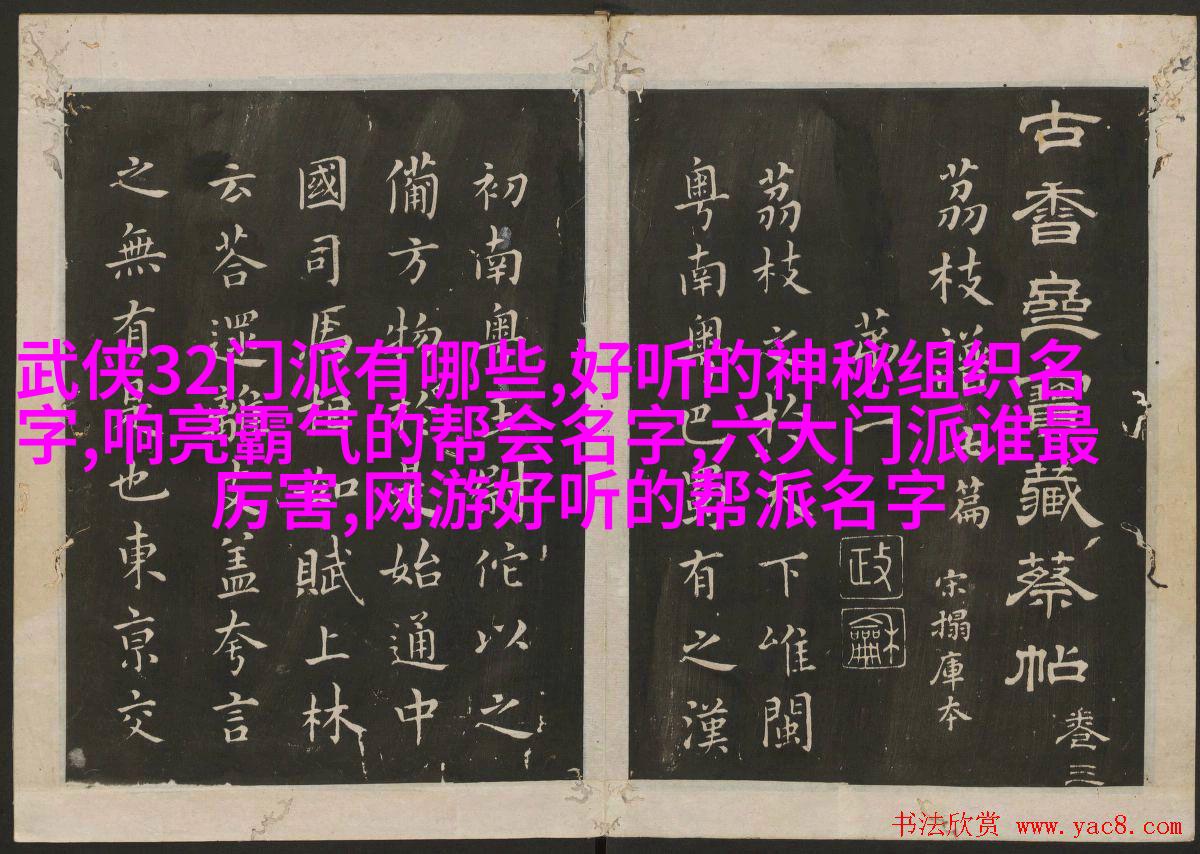 武侠32门派有哪些,好听的神秘组织名
字,响亮霸气的帮会名字,六大门派谁最
厉害,网游好听的帮派名字
古香齋寶藏蔡帖 卷三
荔枝譜七篇 宋搨庫本
政龢
荔枝之於天下唯閩
粵南粵巴蜀有之漢
初南粵王尉佗以之
備方物於是始通中
國司馬相如賦上林
云荅遝離支盖夸言
之無有是也東京交
书法欣赏 www.yac8.com